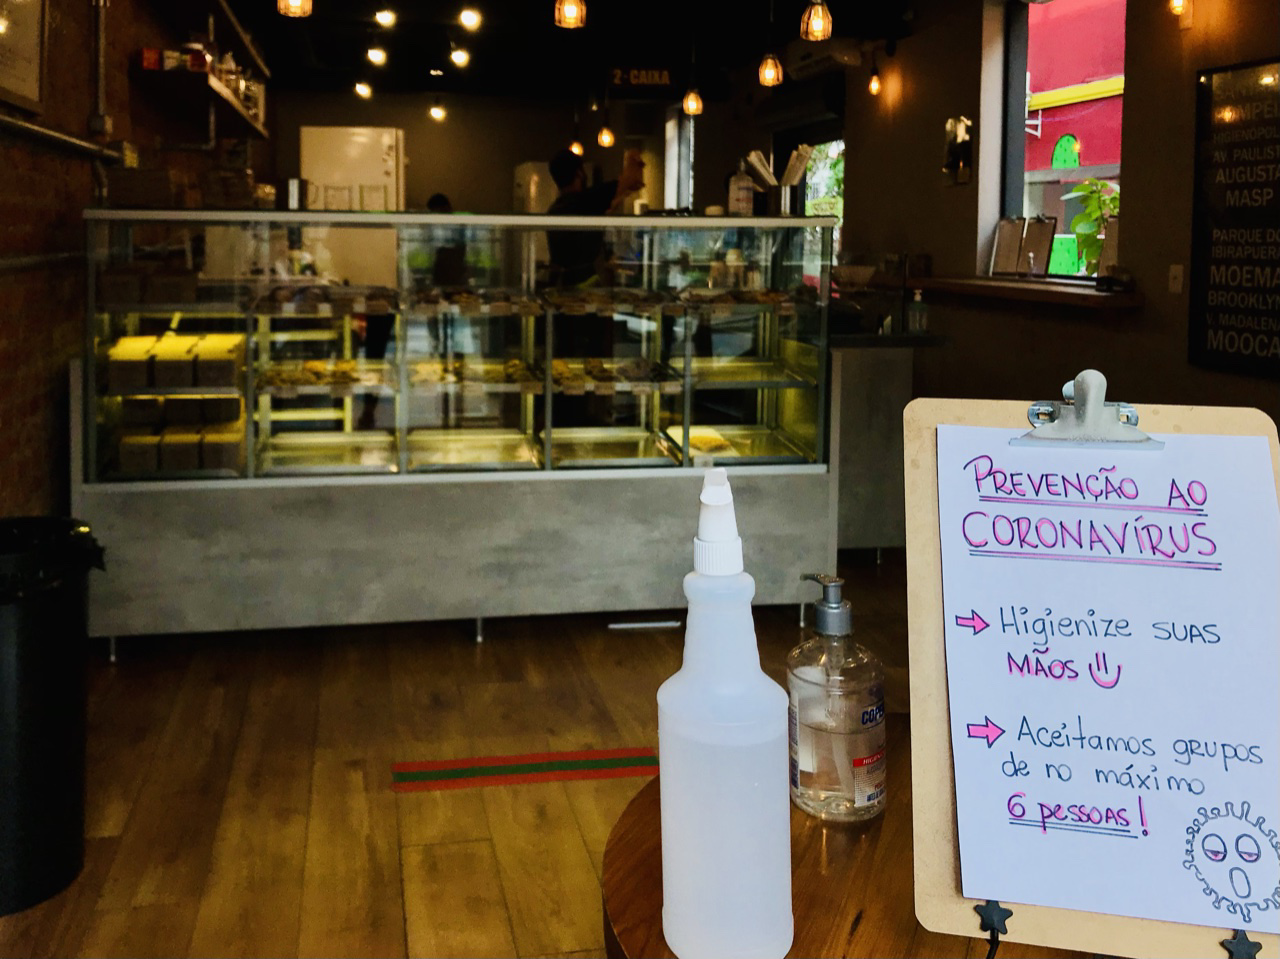 2 - CAIXA
AV. PAULISTA
AUGUSTA
MASP
PARQUE DO
IBIRAPUERA
MOEMA
BROOKLYN
V. MADALENA
MOOCA
PREVENÇÃO AO
CORONAVÍRUS
Higienize SUAS
MÃOS
Aceitamos grupos
de no máximo
6 pessoas!